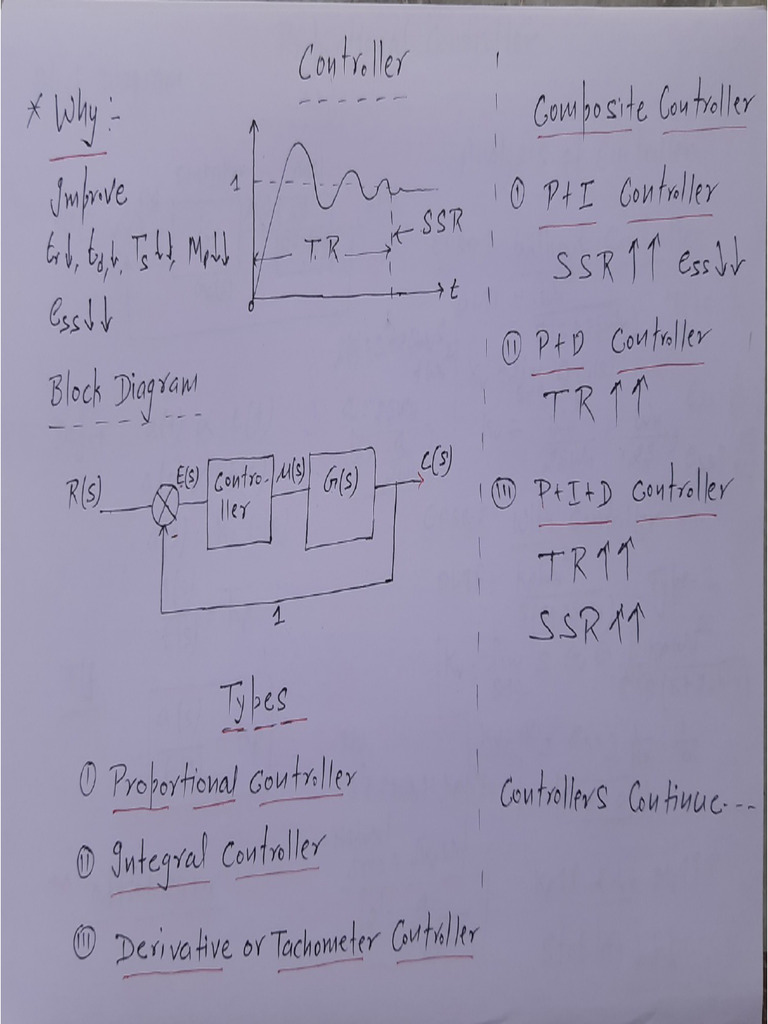 Controller
* Why :-
Improve
tr↓, td↓, Ts↓↓, Mp↓↓
ess↓↓
1
T.R
SSR
0
t
Block Diagram
R(s)
E(s)
Contro-
ller
M(s)
G(s)
C(s)
-
1
Types
(i) Proportional Controller
(ii) Integral Controller
(iii) Derivative or Tachometer Controller
Composite Controller
(i) P+I Controller
SSR↑↑ ess↓↓
(ii) P+D Controller
TR↑↑
(iii) P+I+D Controller
TR↑↑
SSR↑↑
Controllers Continue---